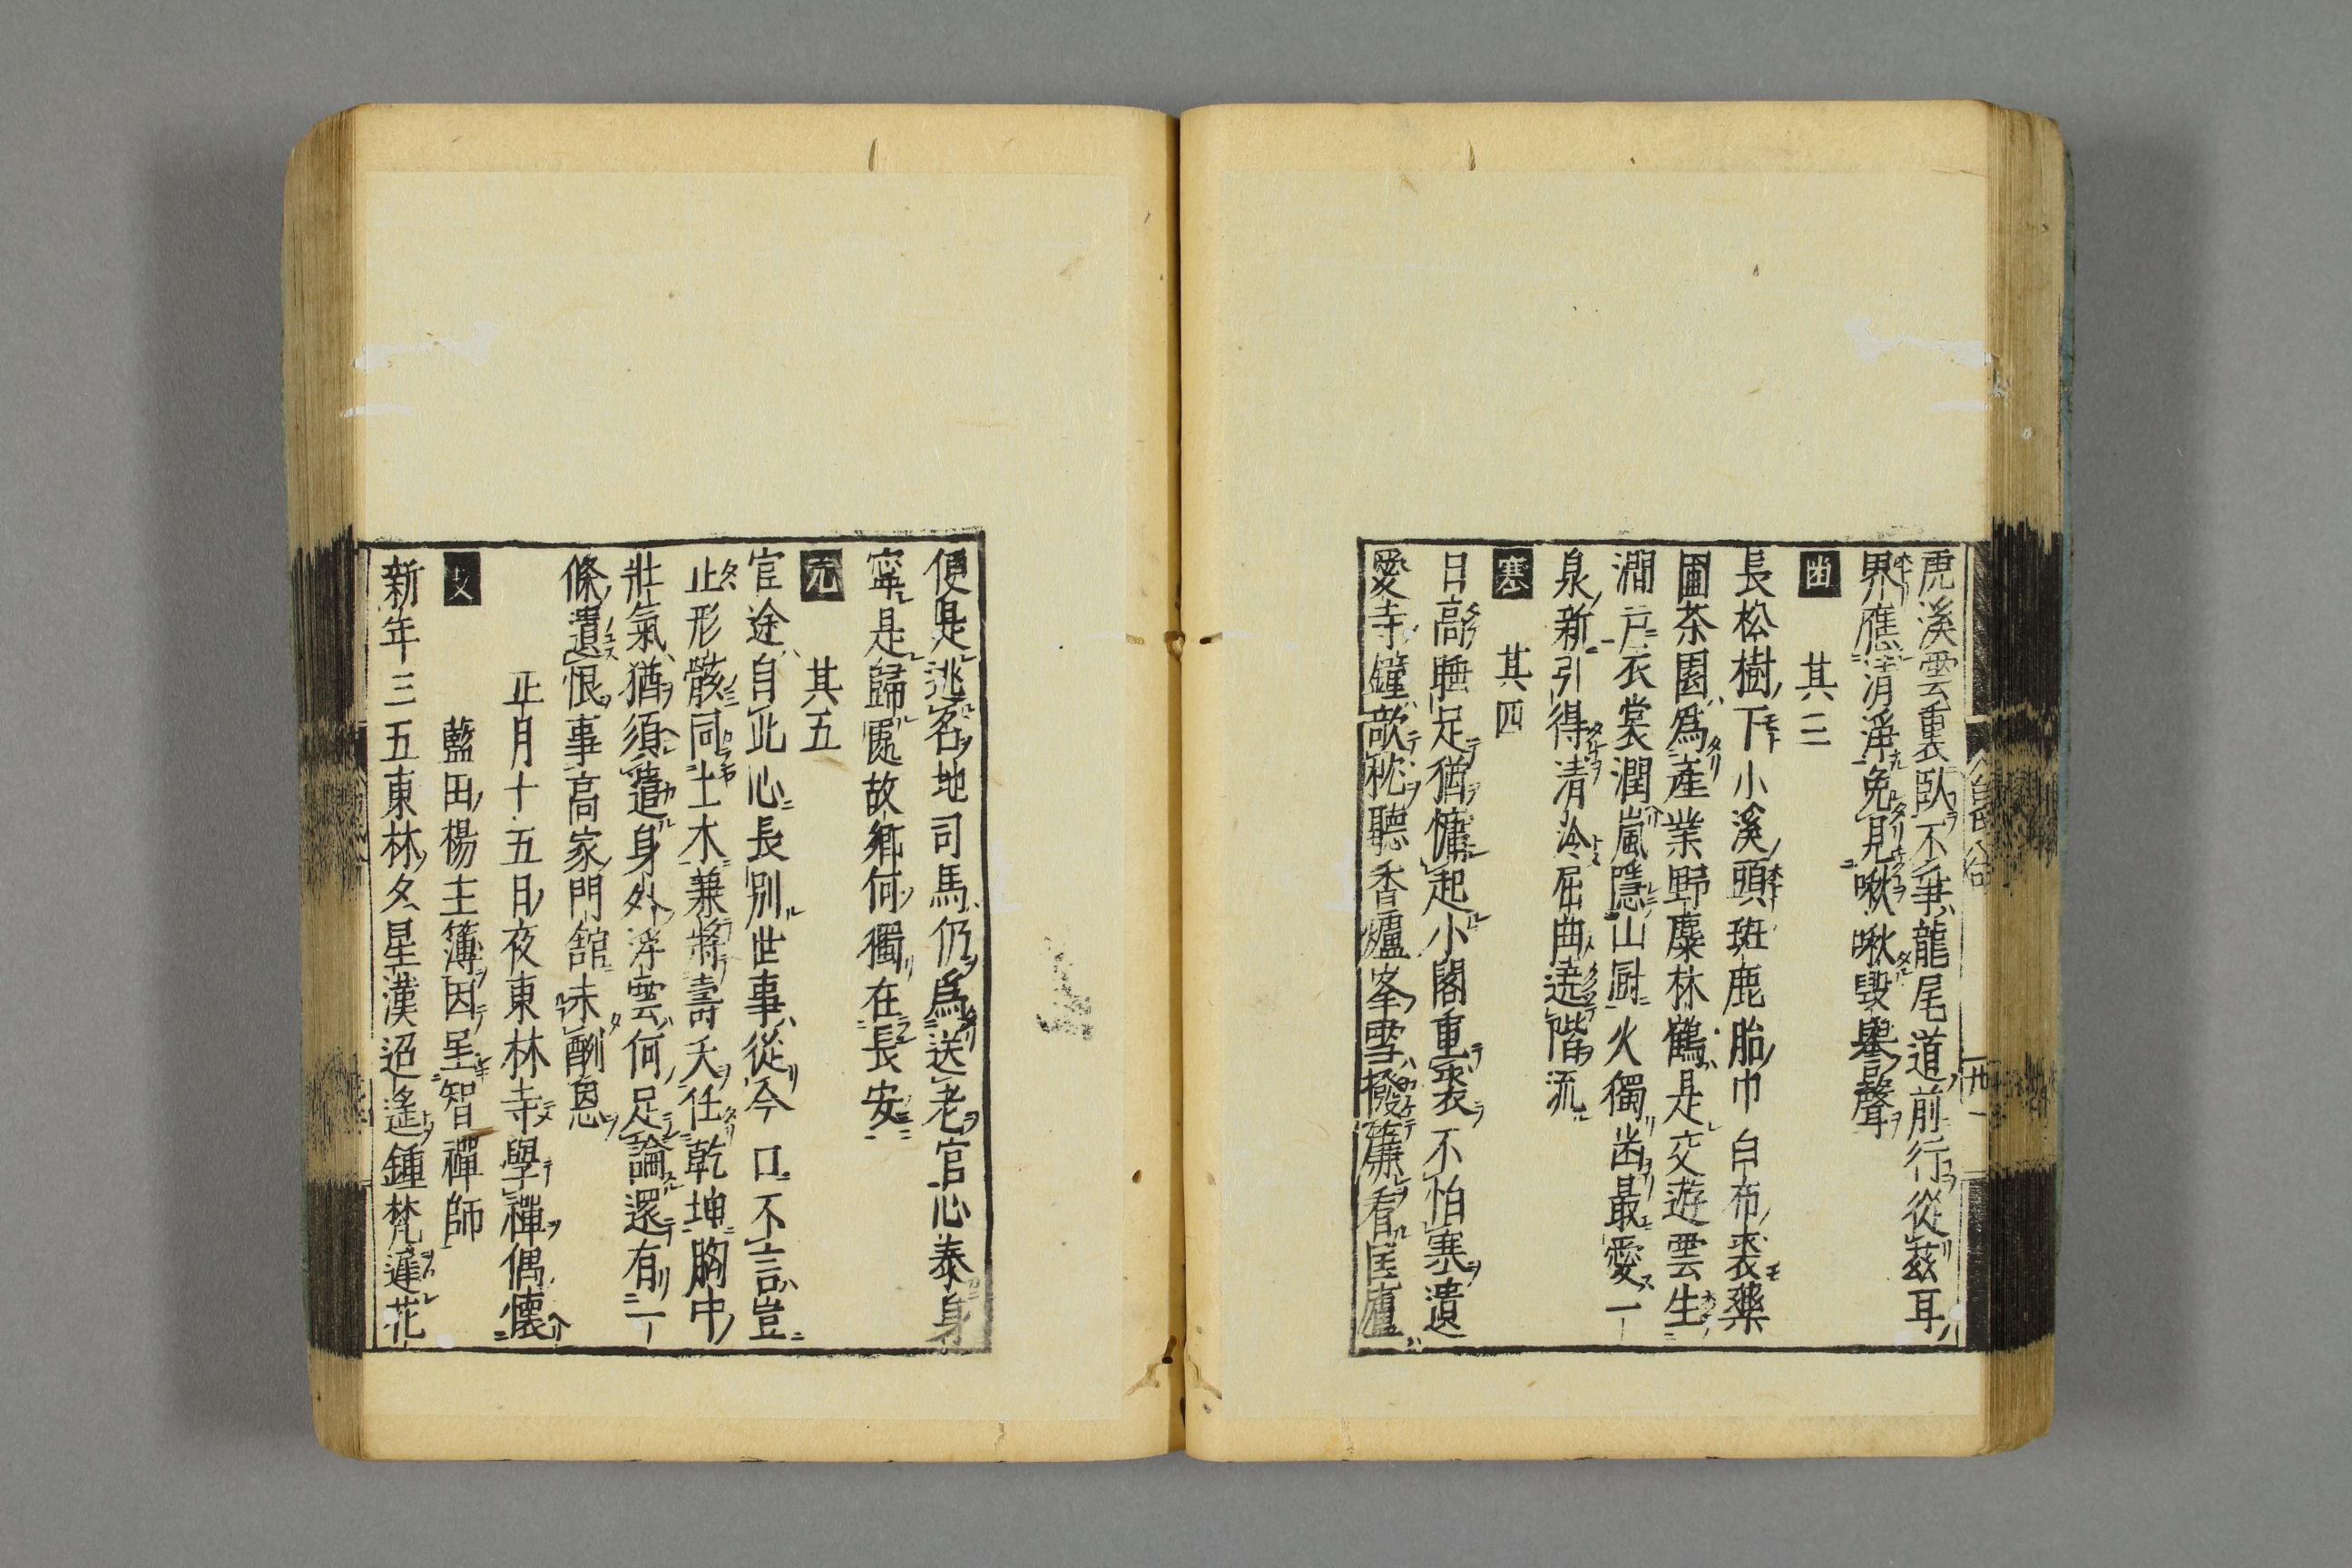 虎溪雲裏臥不爭龍尾道前行從茲耳
界應清淨免見啾啾毀譽聲
幽 其三
長松樹下小溪頭斑鹿胎巾白布裘藥
圃茶園爲產業野麋林鶴是交遊雲生
澗戸衣裳潤嵐隱山厨火獨幽最愛一
泉新引得清泠屈曲遶階流
寒 其四
日高睡足猶慵起小閣重裘不怕寒遺
愛寺鐘欹枕聽香爐峯雪撥簾看匡廬
便是逃名地司馬仍爲送老官心泰身
寧是歸處故鄉何獨在長安
元 其五
宦途自此心長別世事從今口不言豈
止形骸同土木兼將壽夭任乾坤胸中
壯氣猶須遣身外浮雲何足論還有一
條遺恨事高家門舘未酬恩
正月十五日夜東林寺學禪偶懷
支 藍田楊主簿因呈智禪師
新年三五東林夕星漢迢遙鍾梵遲花